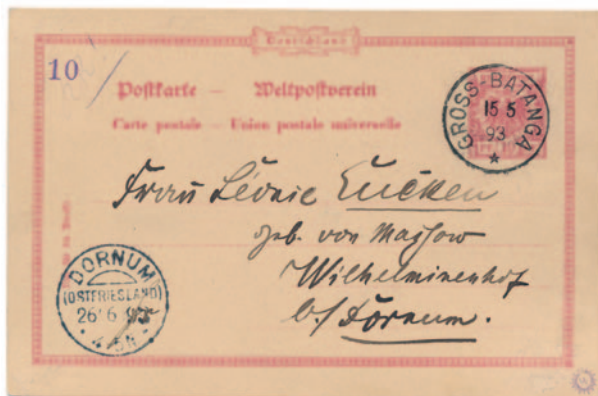 Deutschland
10
Postkarte — Weltpostverein
Carte postale — Union postale universelle
GROSS-BATANGA
15 5
93
Frau Léonie Eucken
geb. von Massow
Wilhelminenhof
b/ Dornum.
DORNUM
(OSTFRIESLAND)
26 6 93
4-5N